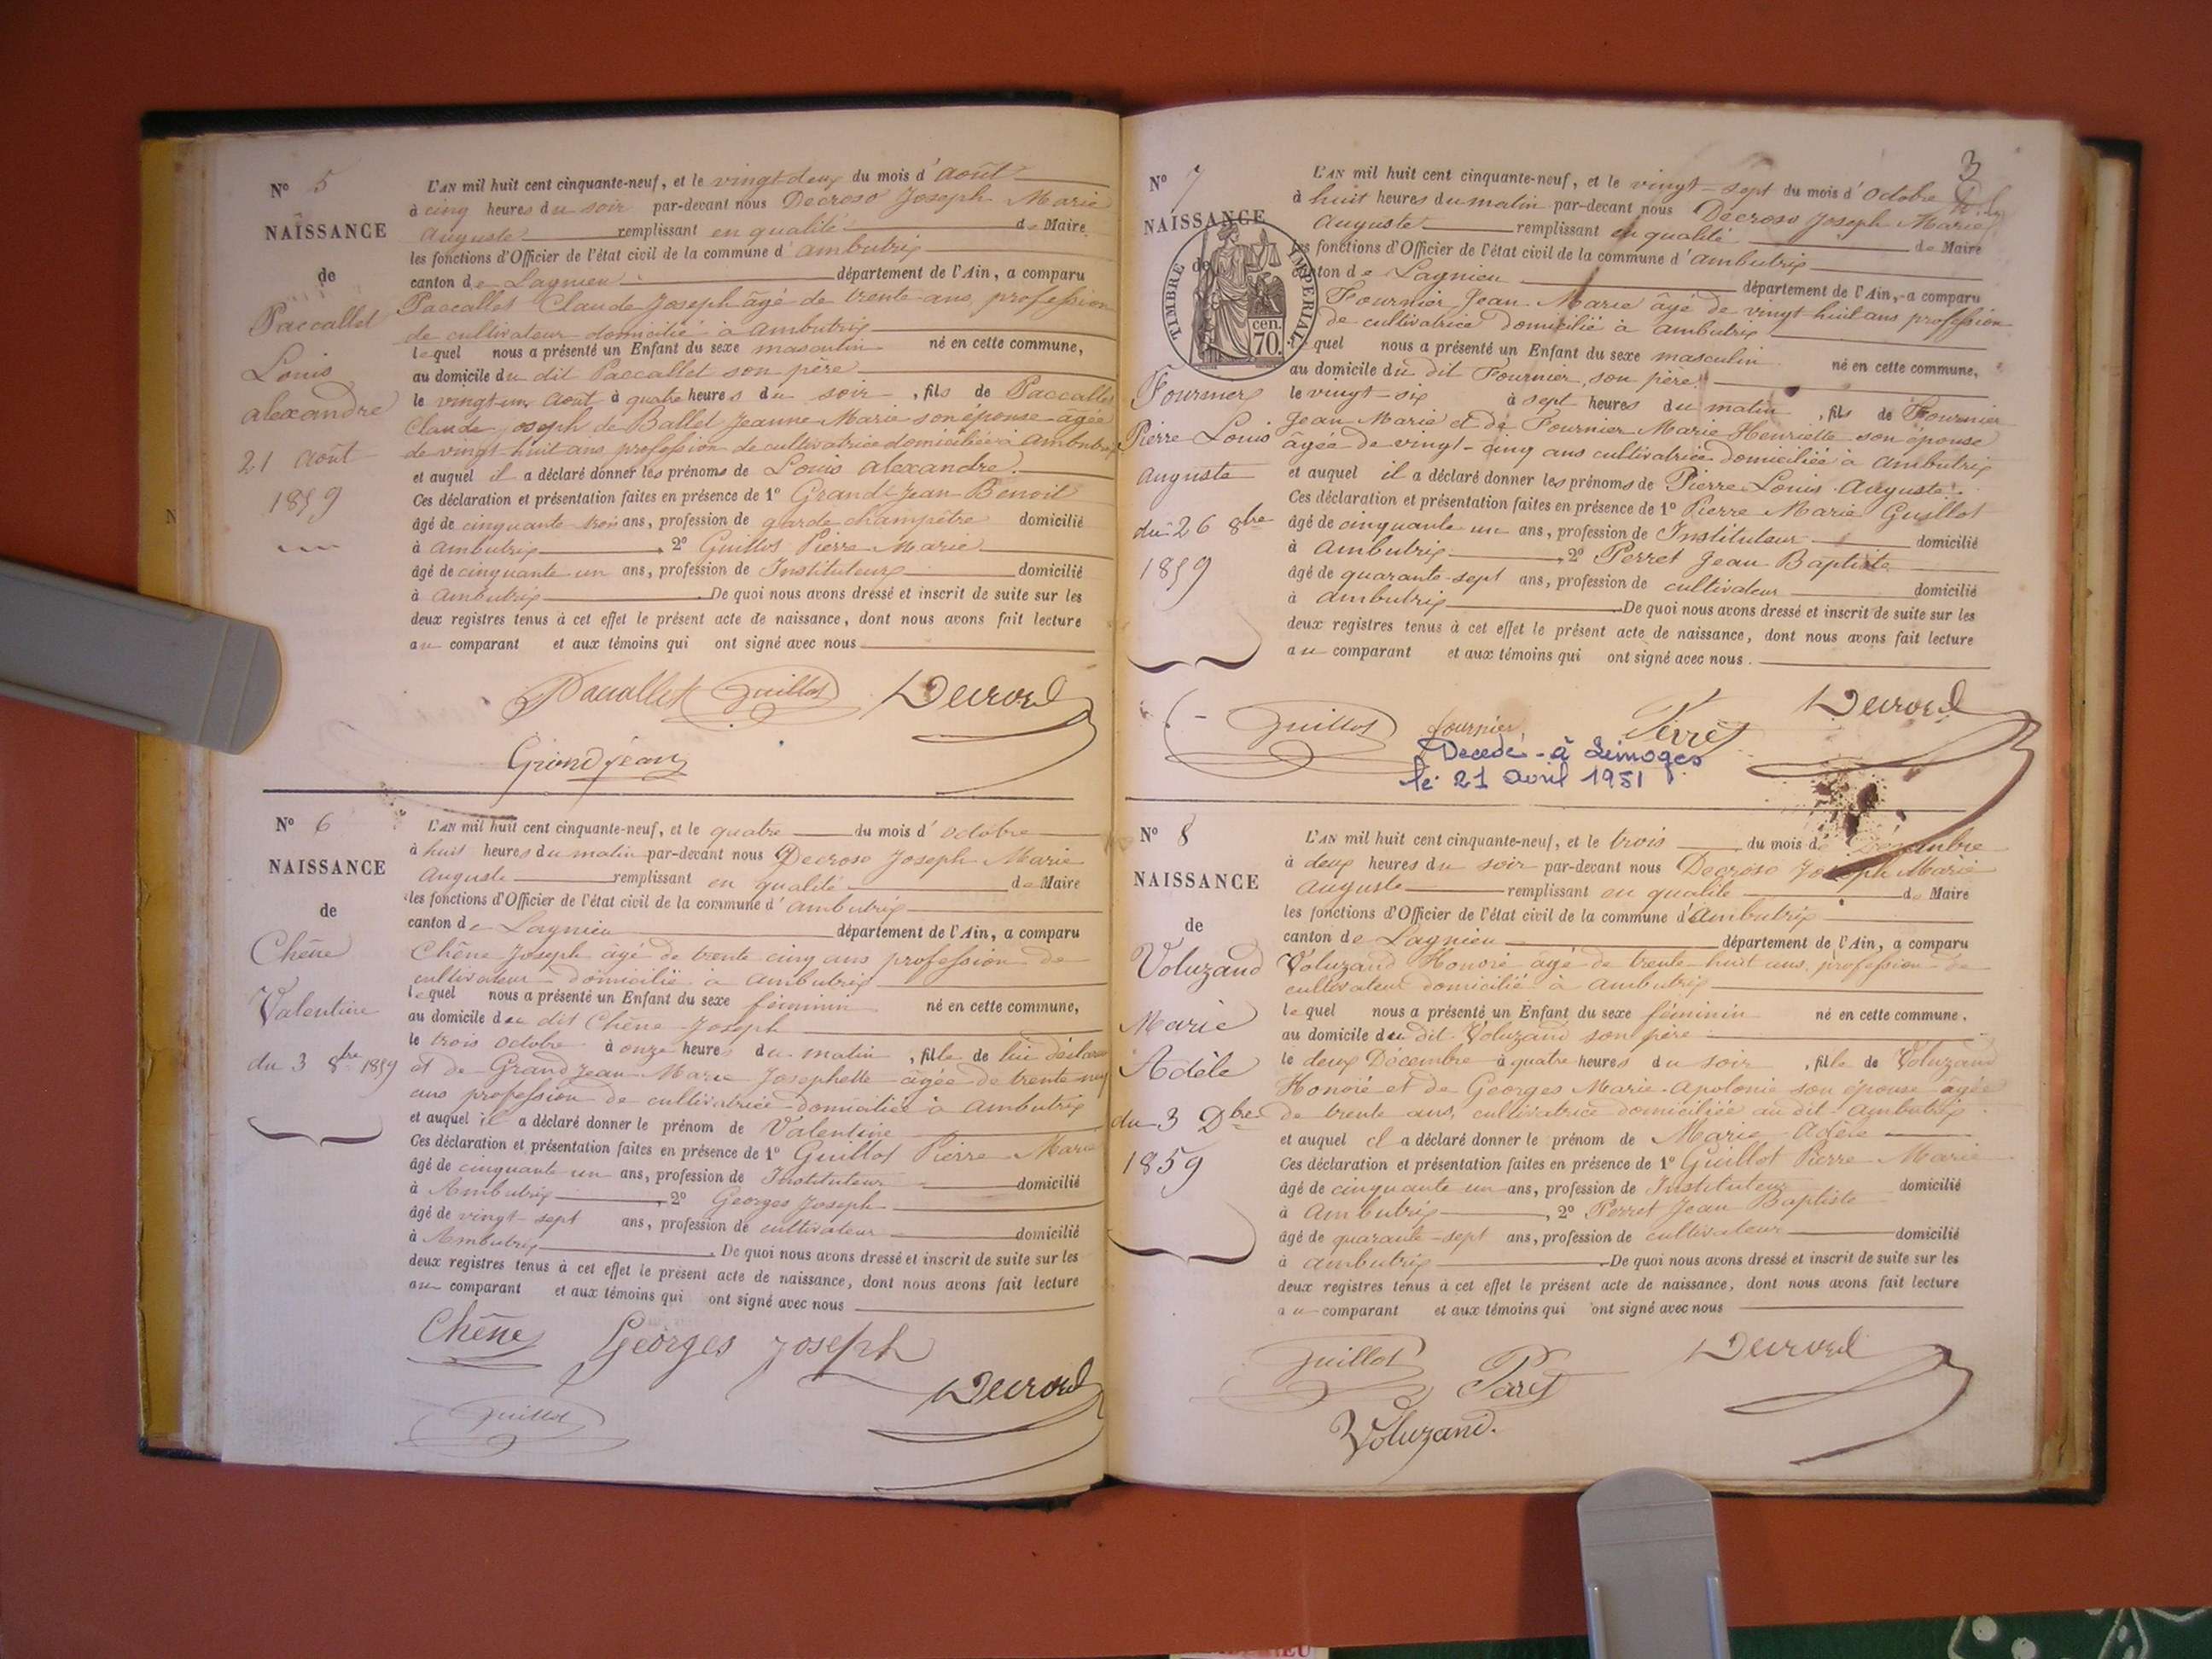 N° 5
NAISSANCE
de
Paccallet
Louis
alexandre
21 août
1859
L'AN mil huit cent cinquante-neuf, et le vingt-deux du mois d'août
à cinq heures du soir par-devant nous Decroso Joseph Marie
Auguste remplissant en qualité de Maire
les fonctions d'Officier de l'état civil de la commune d'ambutrix
canton de Lagnieu département de l'Ain, a comparu
Paccallet Claude Joseph âgé de trente ans, profession
de cultivateur domicilié à ambutrix
lequel nous a présenté un Enfant du sexe masculin né en cette commune,
au domicile du dit Paccallet son père
le vingt-un août à quatre heures du soir, fils de Paccallet
Claude Joseph de Ballet Jeanne Marie son épouse âgée
de vingt-huit ans profession de cultivatrice domiciliée à Ambutrix
et auquel il a déclaré donner les prénoms de Louis alexandre.
Ces déclaration et présentation faites en présence de 1° Grand Jean Benoit
âgé de cinquante trois ans, profession de garde champêtre domicilié
à ambutrix, 2° Guillot Pierre Marie
âgé de cinquante un ans, profession de Instituteur domicilié
à ambutrix. De quoi nous avons dressé et inscrit de suite sur les
deux registres tenus à cet effet le présent acte de naissance, dont nous avons fait lecture
au comparant et aux témoins qui ont signé avec nous.
Paccallet Guillot Decroso
Grandjean
N° 6
NAISSANCE
de
Chêne
Valentine
du 3 8bre 1859
L'AN mil huit cent cinquante-neuf, et le quatre du mois d'octobre
à huit heures du matin par-devant nous Decroso Joseph Marie
Auguste remplissant en qualité de Maire
les fonctions d'Officier de l'état civil de la commune d'ambutrix
canton de Lagnieu département de l'Ain, a comparu
Chêne Joseph âgé de trente cinq ans profession de
cultivateur domicilié à ambutrix
lequel nous a présenté un Enfant du sexe féminin né en cette commune,
au domicile du dit Chêne Joseph
le trois octobre à onze heures du matin, fille de lui déclarant
et de Grandjean Marie Josephette âgée de trente neuf
ans profession de cultivatrice domiciliée à ambutrix
et auquel il a déclaré donner le prénom de Valentine
Ces déclaration et présentation faites en présence de 1° Guillot Pierre Marie
âgé de cinquante un ans, profession de Instituteur domicilié
à Ambutrix, 2° Georges Joseph
âgé de vingt-sept ans, profession de cultivateur domicilié
à Ambutrix. De quoi nous avons dressé et inscrit de suite sur les
deux registres tenus à cet effet le présent acte de naissance, dont nous avons fait lecture
au comparant et aux témoins qui ont signé avec nous
Chêne Georges Joseph
Decroso
Guillot
3
N° 7
NAISSANCE
de
TIMBRE IMPERIAL
cen.
70.
Fournier
Pierre Louis
Auguste
du 26 8bre
1859
L'AN mil huit cent cinquante-neuf, et le vingt-sept du mois d'octobre
à huit heures du matin par-devant nous Decroso Joseph Marie
Auguste remplissant en qualité de Maire
les fonctions d'Officier de l'état civil de la commune d'ambutrix
canton de Lagnieu département de l'Ain, a comparu
Fournier Jean Marie âgé de vingt huit ans profession
de cultivatrice domicilié à ambutrix
lequel nous a présenté un Enfant du sexe masculin né en cette commune,
au domicile du dit Fournier, son père.
le vingt-six à sept heures du matin, fils de Fournier
Jean Marie et de Fournier Marie Henriette son épouse
âgée de vingt-cinq ans cultivatrice domiciliée à ambutrix
et auquel il a déclaré donner les prénoms de Pierre Louis Auguste.
Ces déclaration et présentation faites en présence de 1° Pierre Marie Guillot
âgé de cinquante un ans, profession de Instituteur domicilié
à Ambutrix, 2° Perret Jean Baptiste
âgé de quarante-sept ans, profession de cultivateur domicilié
à ambutrix. De quoi nous avons dressé et inscrit de suite sur les
deux registres tenus à cet effet le présent acte de naissance, dont nous avons fait lecture
au comparant et aux témoins qui ont signé avec nous.
Guillot fournier Perret Decroso
Decedé à Limoges
le 21 avril 1951
N° 8
NAISSANCE
de
Voluzand
Marie
Adèle
du 3 Dbre
1859
L'AN mil huit cent cinquante-neuf, et le trois du mois de Décembre
à deux heures du soir par-devant nous Decroso Joseph Marie
Auguste remplissant en qualité de Maire
les fonctions d'Officier de l'état civil de la commune d'Ambutrix
canton de Lagnieu département de l'Ain, a comparu
Voluzand Honoré âgé de trente-huit ans, profession de
cultivateur domicilié à ambutrix
lequel nous a présenté un Enfant du sexe féminin né en cette commune,
au domicile du dit Voluzand son père
le deux Décembre à quatre heures du soir, fille de Voluzand
Honoré et de Georges Marie-Apolonie son épouse âgée
de trente ans, cultivatrice domiciliée au dit ambutrix.
et auquel il a déclaré donner le prénom de Marie Adèle
Ces déclaration et présentation faites en présence de 1° Guillot Pierre Marie
âgé de cinquante un ans, profession de Instituteur domicilié
à Ambutrix, 2° Perret Jean Baptiste
âgé de quarante-sept ans, profession de cultivateur domicilié
à ambutrix. De quoi nous avons dressé et inscrit de suite sur les
deux registres tenus à cet effet le présent acte de naissance, dont nous avons fait lecture
au comparant et aux témoins qui ont signé avec nous
Guillot Perret Decroso
Voluzand.